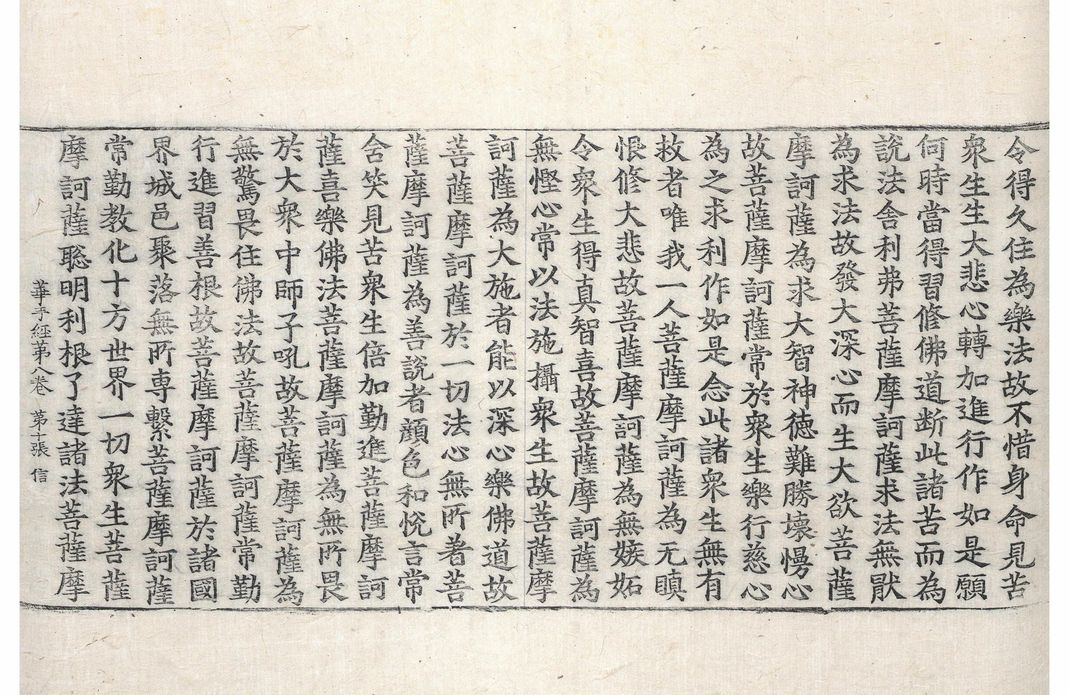 令得久住為樂法故不惜身命見苦
衆生生大悲心轉加進行作如是願
何時當得習修佛道断此諸苦而為
說法舎利弗菩薩摩訶薩求法無猒
為求法故發大深心而生大欲菩薩
摩訶薩為求大智神德難勝壞慢心
故菩薩摩訶薩常於衆生樂行慈心
為之求利作如是念此諸衆生無有
救者唯我一人菩薩摩訶薩為无瞋
恨修大悲故菩薩摩訶薩為無嫉妬
令衆生得真智喜故菩薩摩訶薩為
無慳心常以法施攝衆生故菩薩摩
訶薩為大施者能以深心樂佛道故
菩薩摩訶薩於一切法心無所著菩
薩摩訶薩為善說者顔色和悅言常
含笑見苦衆生倍加勤進菩薩摩訶
薩喜樂佛法菩薩摩訶薩為無所畏
於大衆中師子吼故菩薩摩訶薩為
無驚畏住佛法故菩薩摩訶薩常勤
行進習善根故菩薩摩訶薩於諸國
界城邑聚落無所専繫菩薩摩訶薩
常勤教化十方世界一切衆生菩薩
摩訶薩聡明利根了達諸法菩薩摩
華手經第八卷 第十張 信